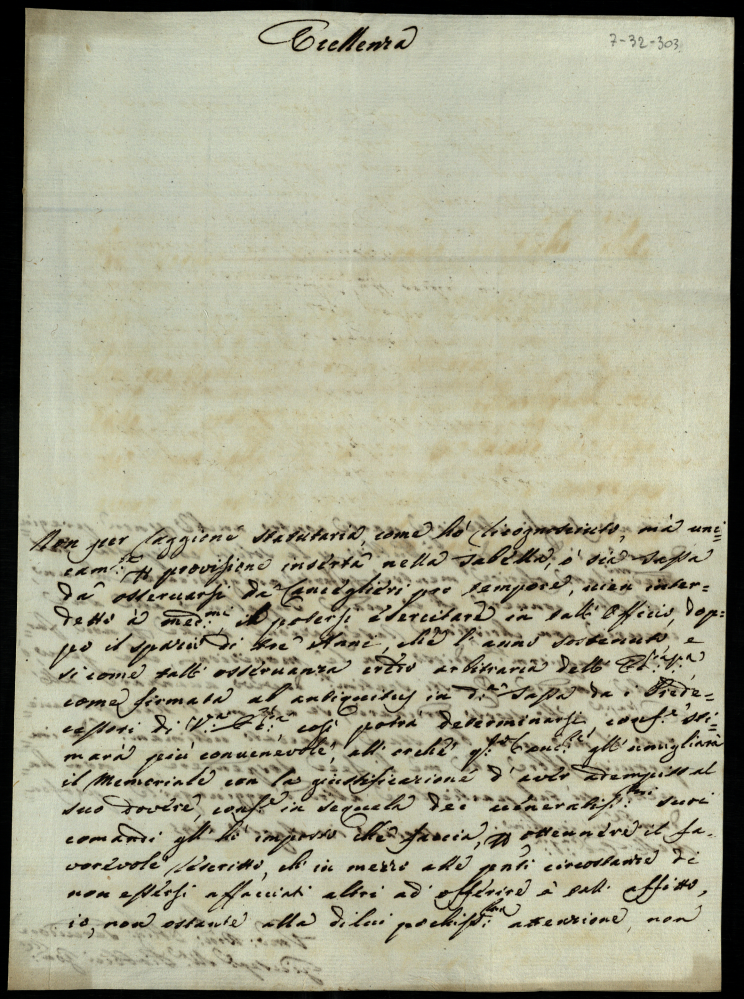 Eccellenza
7-32-303
Non per caggione statutaria, come hò ricognosciuto, mà uni=
cam.te p provisione inserta nella Tabella, ò sia Tassa
da osservarsi da Canceglieri pro tempore, vien inter=
detto à med.mi il potersi esercitare in tall' Officio, dop=
po il spazio di trè Anni, che l'anno sostenuto e
si come tall' osservanza credo arbitraria dell' Ec.za V.ra
come firmata ab antiquitus in d.a Tassa da i Prede=
cessori di V.ra Ecc.za, così potrà determinarsi, conf.e sti=
marà più convenevole, all' orche q.sto Canc.re gl' umigliarà
il Memoriale con la giustificazione d' aver adempito al
suo dovere, conf.e in sequela dei veneratiss.mi suoi
comandi gl' hò imposto che faccia, p ottennere il fa=
vorevole rescritto, ch' in mezzo alle pnti circostanze di
non essersi affacciati altri ad offerire à tall' affitto,
io, non ostante alla dilui pochiss.ma attenzione, non